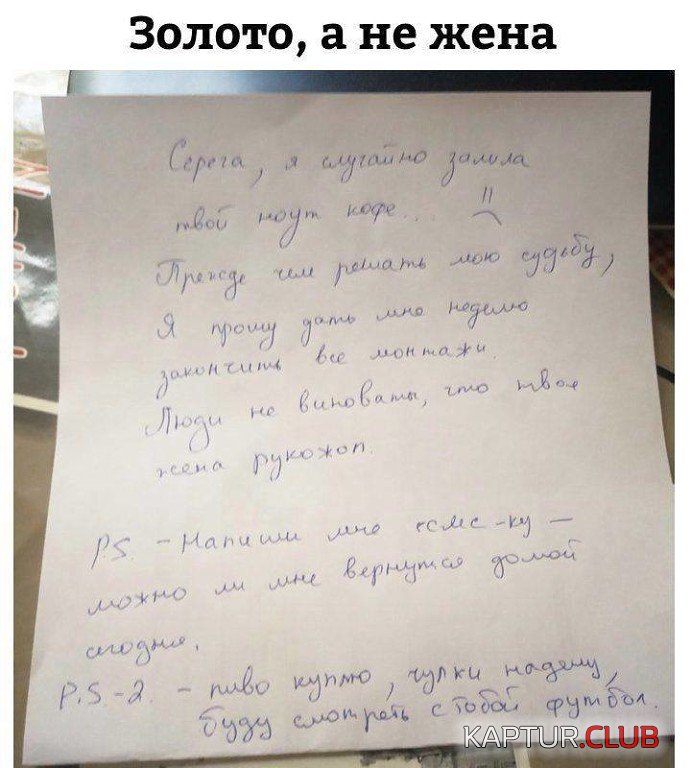 Золото, а не жена
Серега, я случайно залила
твой ноут кофе...
Прежде чем решать мою судьбу,
Я прошу дать мне неделю
закончить все монтажи.
Люди не виноваты, что твоя
жена рукожоп.
P.S. - Напиши мне смс-ку -
можно ли мне вернутся домой
сегодня.
P.S.-2. - пиво куплю, чулки надену,
буду смотреть с тобой футбол.
KAPTUR.CLUB